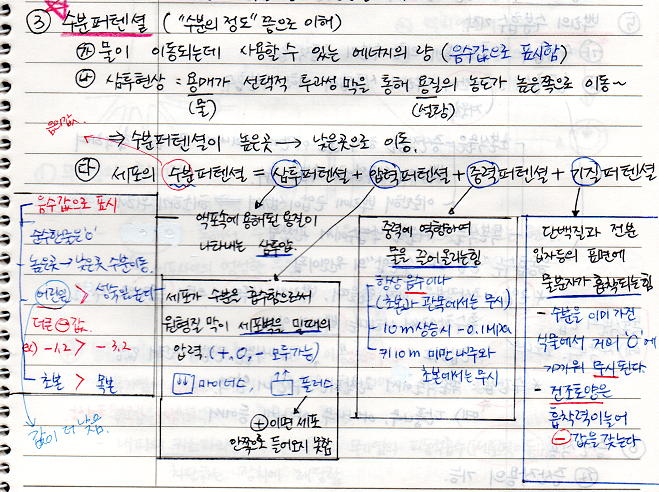 ③ 수분퍼텐셜 ("수분의 정도" 쯤으로 이해)
㉮ 물이 이동되는데 사용할 수 있는 에너지의 량 (음수값으로 표시함)
㉯ 삼투현상 : 용매가 선택적 투과성 막을 통해 용질의 농도가 높은쪽으로 이동~
(물) (설탕)
음의값.
⇒ 수분퍼텐셜이 높은곳 → 낮은곳으로 이동.
㉰ 세포의 수분퍼텐셜 = 삼투퍼텐셜 + 압력퍼텐셜 + 중력퍼텐셜 + 기질퍼텐셜
음수값으로 표시
순수한물은 '0'
높은곳 → 낮은곳 수분이동.
어린잎 > 성숙잎
더 큰 ⊖값.
ex) -1.2 > -3.2
초본 > 목본
값이 더 낮음.
액포속에 용해된 용질이
나타내는 삼투압.
세포가 수분을 흡수함으로써
원형질 막이 세포벽을 밀때의
압력. (+, 0, - 모두가능)
마이너스, 플러스
⊕이면 세포
안쪽으로 들어오지 못함
중력에 역행하여
물을 끌어올리는힘
항상 음수이다
(초본과 관목에서는 무시)
- 10m 상승시 -0.1MPa
- 키10m 미만 나무와
초본에서는 무시
단백질과 전분
입자등의 표면에
물분자가 흡착되는힘
- 수분을 이미 가진
식물에서 거의 '0'에
가까워 무시된다
- 건조토양은
흡착력이높아
⊖값을 갖는다